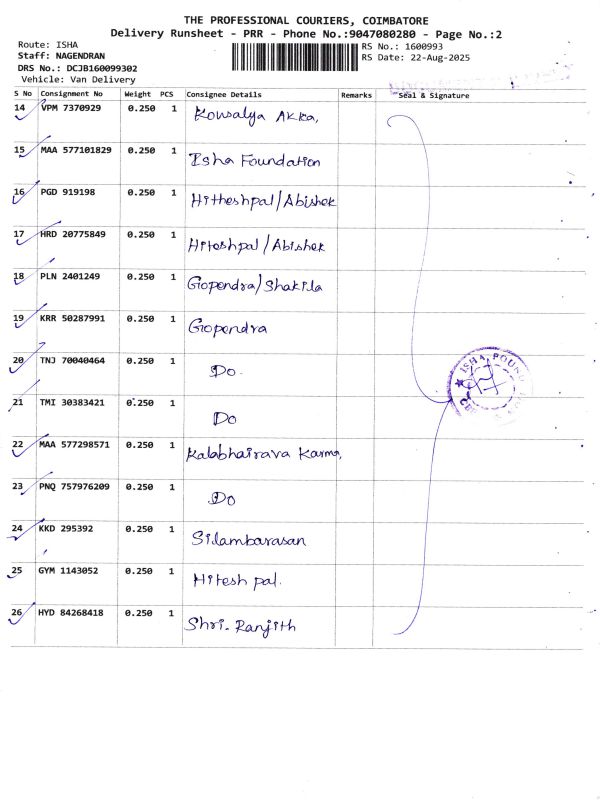 THE PROFESSIONAL COURIERS, COIMBATORE
Delivery Runsheet - PRR - Phone No.:9047080280 - Page No.:2
Route: ISHA
Staff: NAGENDRAN
DRS No.: DCJB160099302
Vehicle: Van Delivery
RS No.: 1600993
RS Date: 22-Aug-2025
S No Consignment No Weight PCS Consignee Details Remarks Seal & Signature
14 VPM 7370929 0.250 1 Kowsalya Akka,
15 MAA 577101829 0.250 1 Isha Foundation
16 PGD 919198 0.250 1 Hitheshpal/Abishek
17 HRD 20775849 0.250 1 Hiteshpal/Abishek
18 PLN 2401249 0.250 1 Gopendra/Shakila
19 KRR 50287991 0.250 1 Gopendra
20 TNJ 70040464 0.250 1 Do.
21 TMI 30383421 0.250 1 Do
22 MAA 577298571 0.250 1 Kalabhairava Karma,
23 PNQ 757976209 0.250 1 Do
24 KKD 295392 0.250 1 Silambarasan
25 GYM 1143052 0.250 1 Hitesh pal.
26 HYD 84268418 0.250 1 Shri. Ranjith
ISHA FOUN